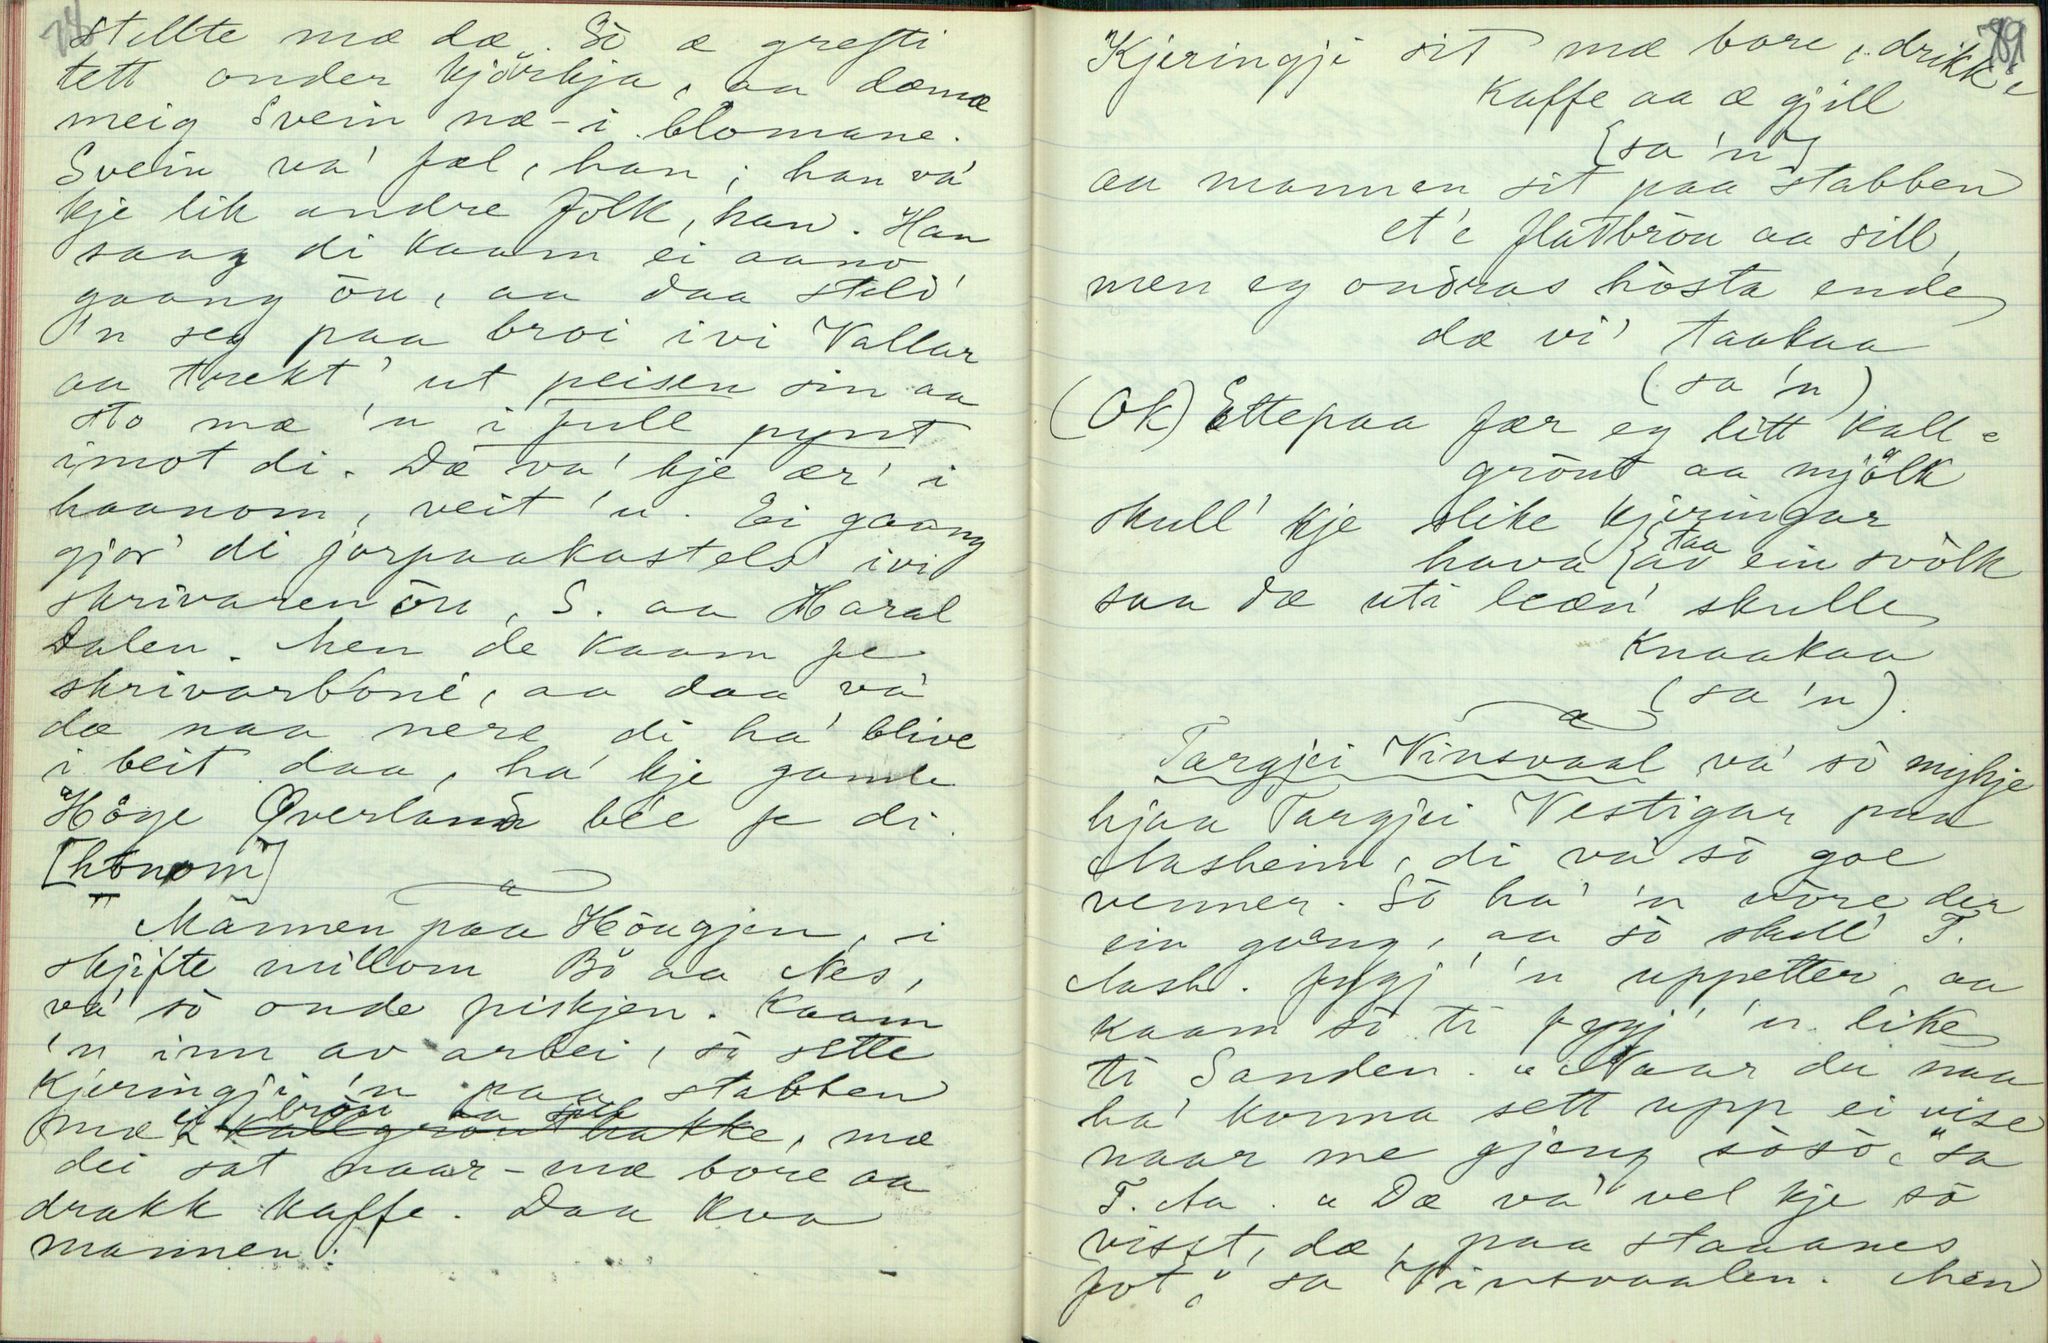 78
stellte mæ dæ. Sò æ grefti
tett onder kjörkja, aa dæmæ
meig Svein næ-i blomane.
Svein va' fæl, han; han va'
kje lik andre folk, han. Han
saag di kaam ei aano
gaang òu, aa daa stelò'
'n seg paa broi ivi Vallar
aa trekt' ut peisen sin aa
sto mæ 'n i full pynt
imot di. Dæ va' kje ær' i
haanom, veit 'u. Ei gaang
gjor' di jorpaakastels' ivi
skrivaren òu, S. aa Haral
Dalen. Men de kaam fe
skrivarbòne, aa daa va'
dæ naa nere di ha' blive
i beit daa, ha' kje gamle
Höge Øverland bée fe di.
[hònom]
Mannen paa Höugjen, i
skjifte millom Bö aa Nes,
va' sò onde piskjen. Kaam
'n inn av arbei, sò sette
kjeringji 'n paa stabben
mæ bròu aa sill kallgròut hakke, mæ
dei sat naar-mæ bore aa
drakk kaffe. Daa kva
mannen:
79
Kjeringji sit mæ bore, drikk'e
kaffe aa æ gjill
{sa 'n}
aa mannen sit paa stabben
et'e flatbròu aa sill,
men eg ondras hòsta ende
dæ vi' taakaa
(sa 'n)
(Ok) Ettepaa fær eg litt kall-
gròut aa mjölk
skull' kje slike kjeringar
hava {av taa ein svòlk
saa dæ uti leæn' skulle
knaakaa
(sa 'n).
Targjei Vinsvaal va' sò mykje
hjaa Targjei Vestigar paa
Aasheim, di va' sò goe
venner. Sò ha' 'n vòre der
ein gaang, aa sò skull' T.
Aash. fygj' 'n uppetter, aa
kaam sò ti fygj' 'n like
ti Sanden. "Naar du naa
ha' konna sett upp ei vise
naar me gjeng sòsò," sa
T. Aa. "Dæ va' vel kje sò
visst, dæ, paa staaanes
fot," sa Vinsvaalen. Men